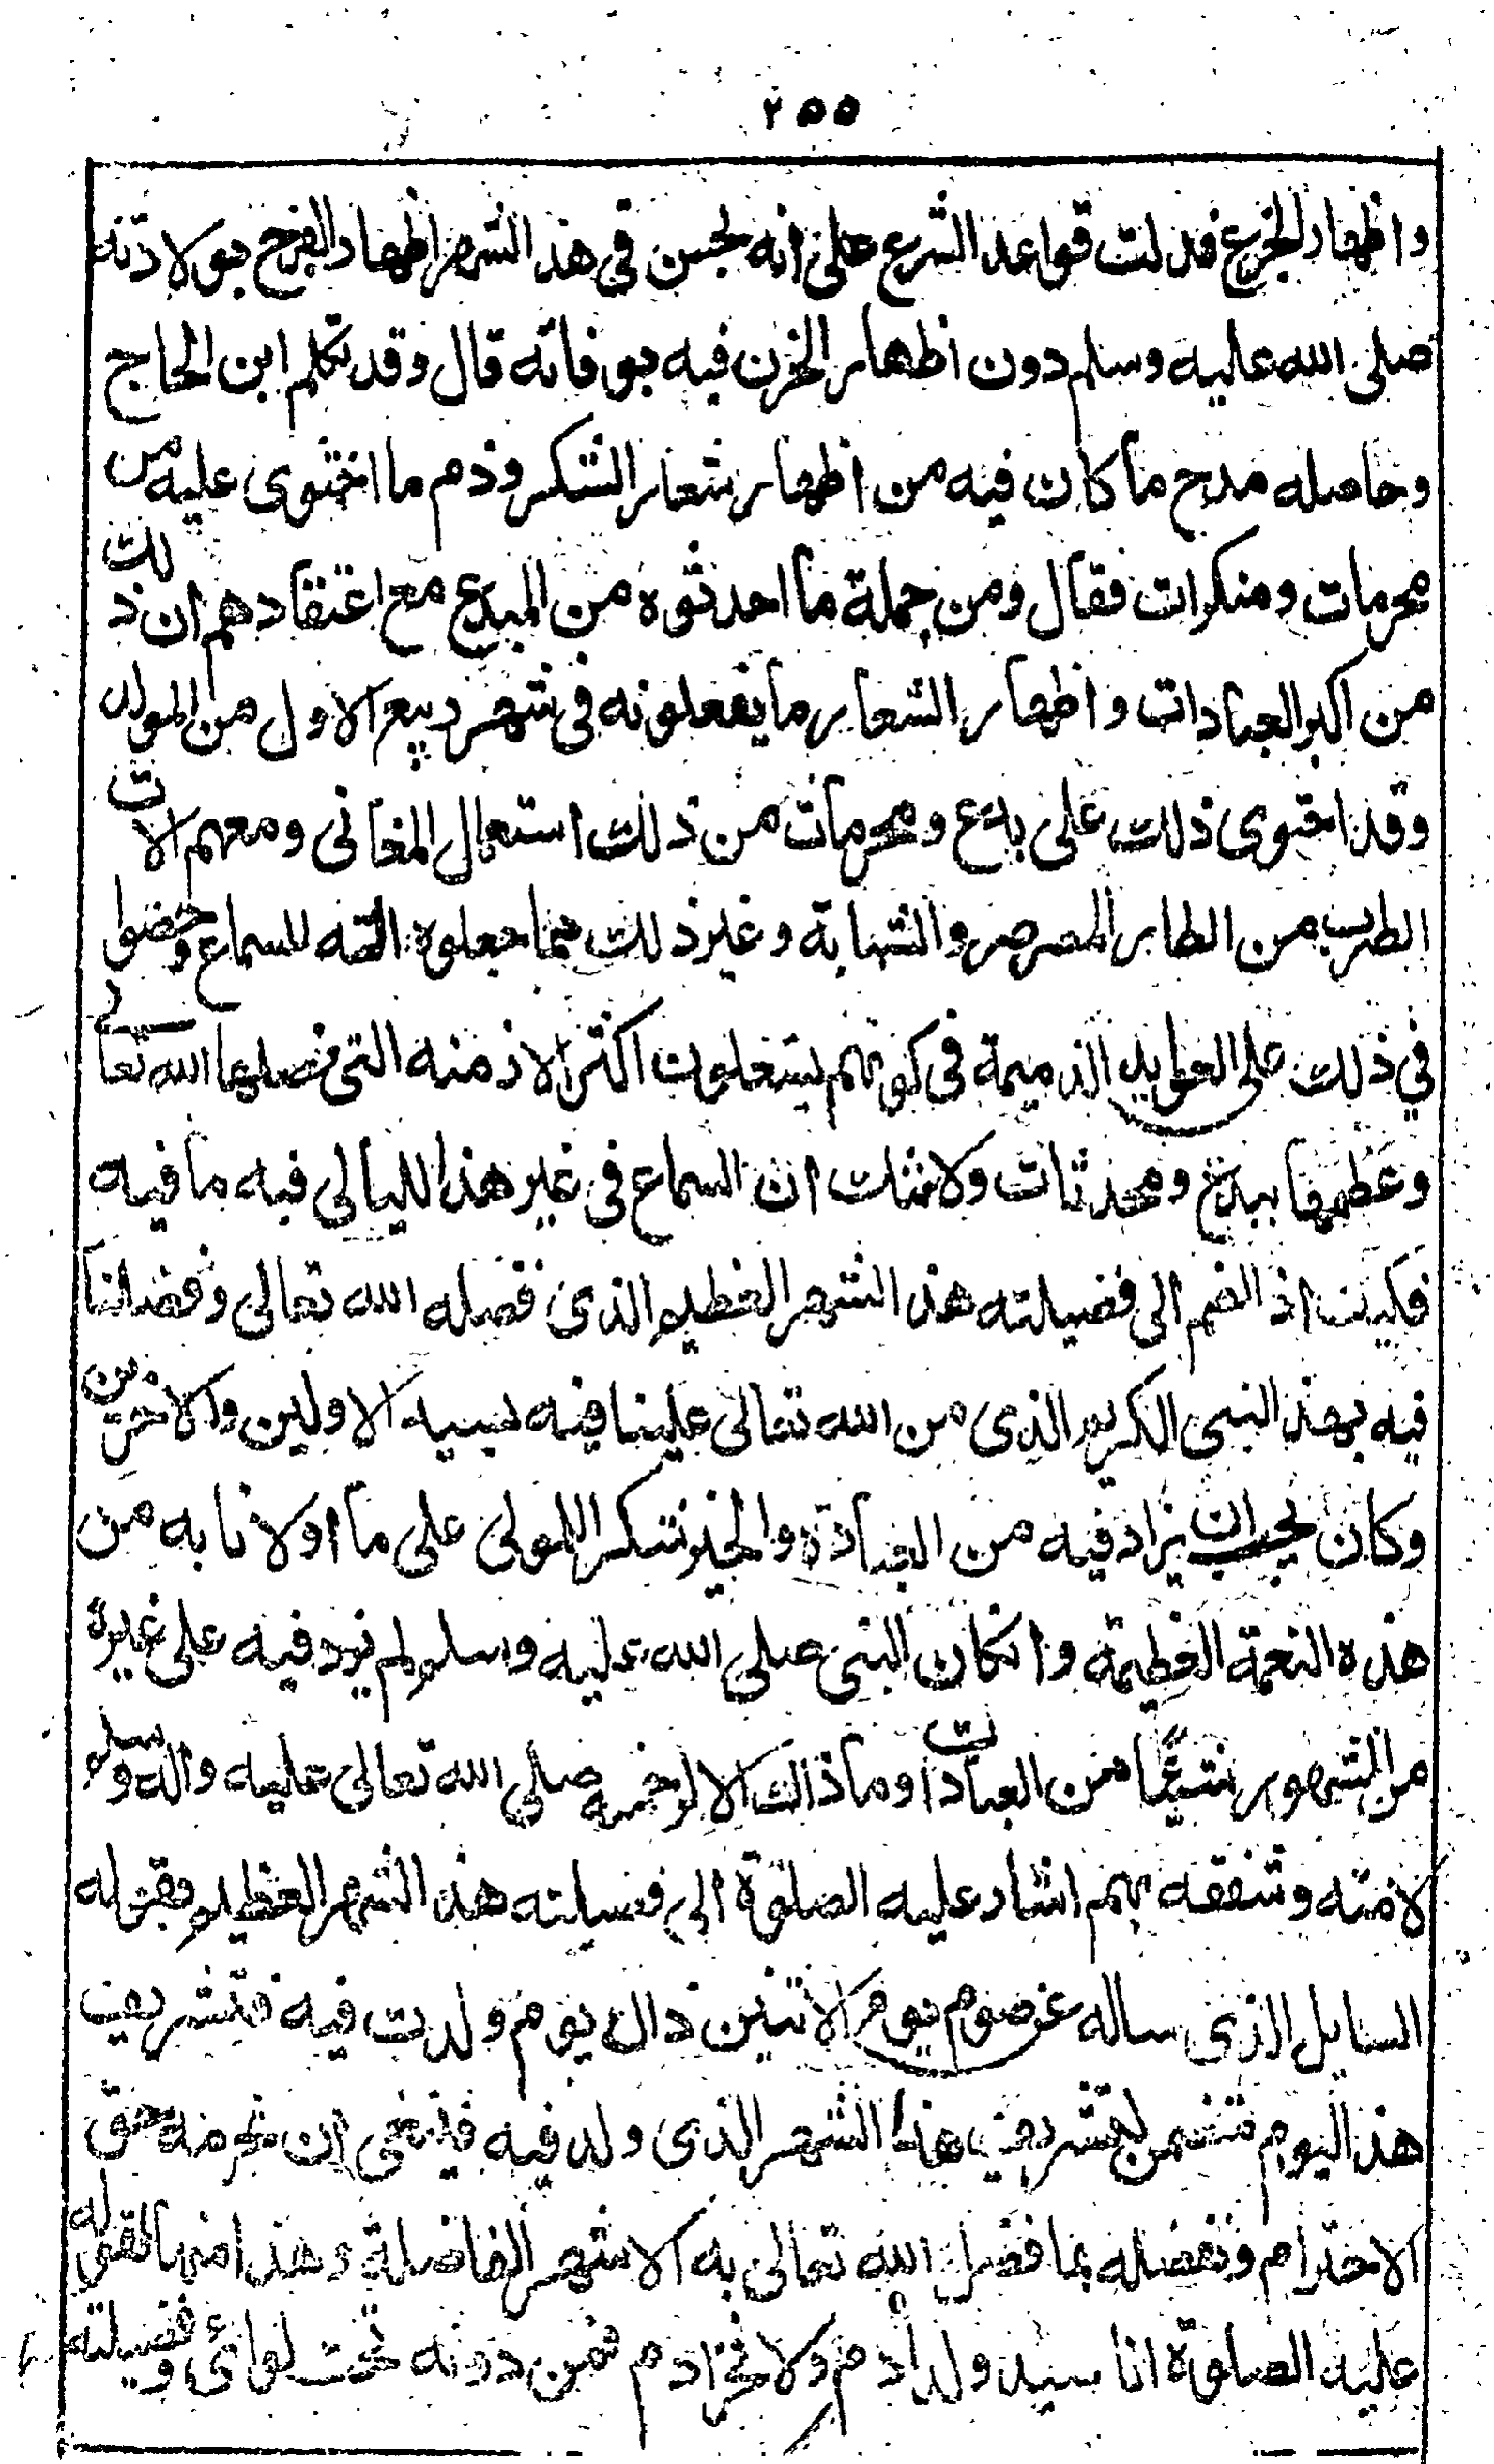 ٢٥٥
واظهار الجزع فدلت قواعد الشرع على انه يحسن في هذا الشهر اظهار الفرح بولادته
صلى الله عليه وسلم دون اظهار الحزن فيه بوفاته قال وقد تكلم ابن الحاج
وحاصله مدح ما كان فيه من اظهار شعار الشكر وذم ما احتوى عليه من
محرمات ومنكرات فقال ومن جملة ما احدثوه من البدع مع اعتقادهم ان ذلك
من اكبر العبادات واظهار الشعاير ما يفعلونه في شهر ربيع الاول من المولد
وقد احتوى ذلك على بدع ومحرمات من ذلك استعمال المغانى ومعهم الات
الطرب من الطار المصرصر والشبابة وغير ذلك مما جعلوه الته للسماع ومضوا
في ذلك على العوايد الذميمة في كونهم يشتغلون اكثر الازمنه التى فضلها الله تعالى
وعظمها ببدع ومحدثات ولاشك ان السماع في غير هذا الليالى فيه ما فيه
فكيف اذا انضم الى فضيلته هذا الشهر العظيم الذى فضله الله تعالى وفضلنا
فيه بهذا النبى الكريم الذى من الله تعالى علينا فيه بسيد الاولين والاخرين
وكان يجب ان يزاد فيه من العبادة والخير شكرا للمولى على ما اولانا به من
هذه النعمة العظيمة وانكان النبى صلى الله عليه وسلم لم يزد فيه على غيره
من الشهور شيئا من العبادات وما ذاك الا لرحمته صلى الله تعالى عليه واله وسلم
لامته وشفقه بهم اشار عليه الصلوة الى فضيلته هذا الشهر العظيم بقوله
السايل الذى ساله عن صوم يوم الاثنين ذاك يوم ولدت فيه فتشريف
هذا اليوم متضمن لتشريف هذا الشهر الذى ولد فيه فينبغى ان نحرمه حق
الاحترام ونفضله بما فضل الله تعالى به الاشهر الفاضلة وهذا منها لقوله
عليه الصلوة انا سيد ولد ادم ولا فخر ادم فمن دونه تحت لوائى وفضيلته